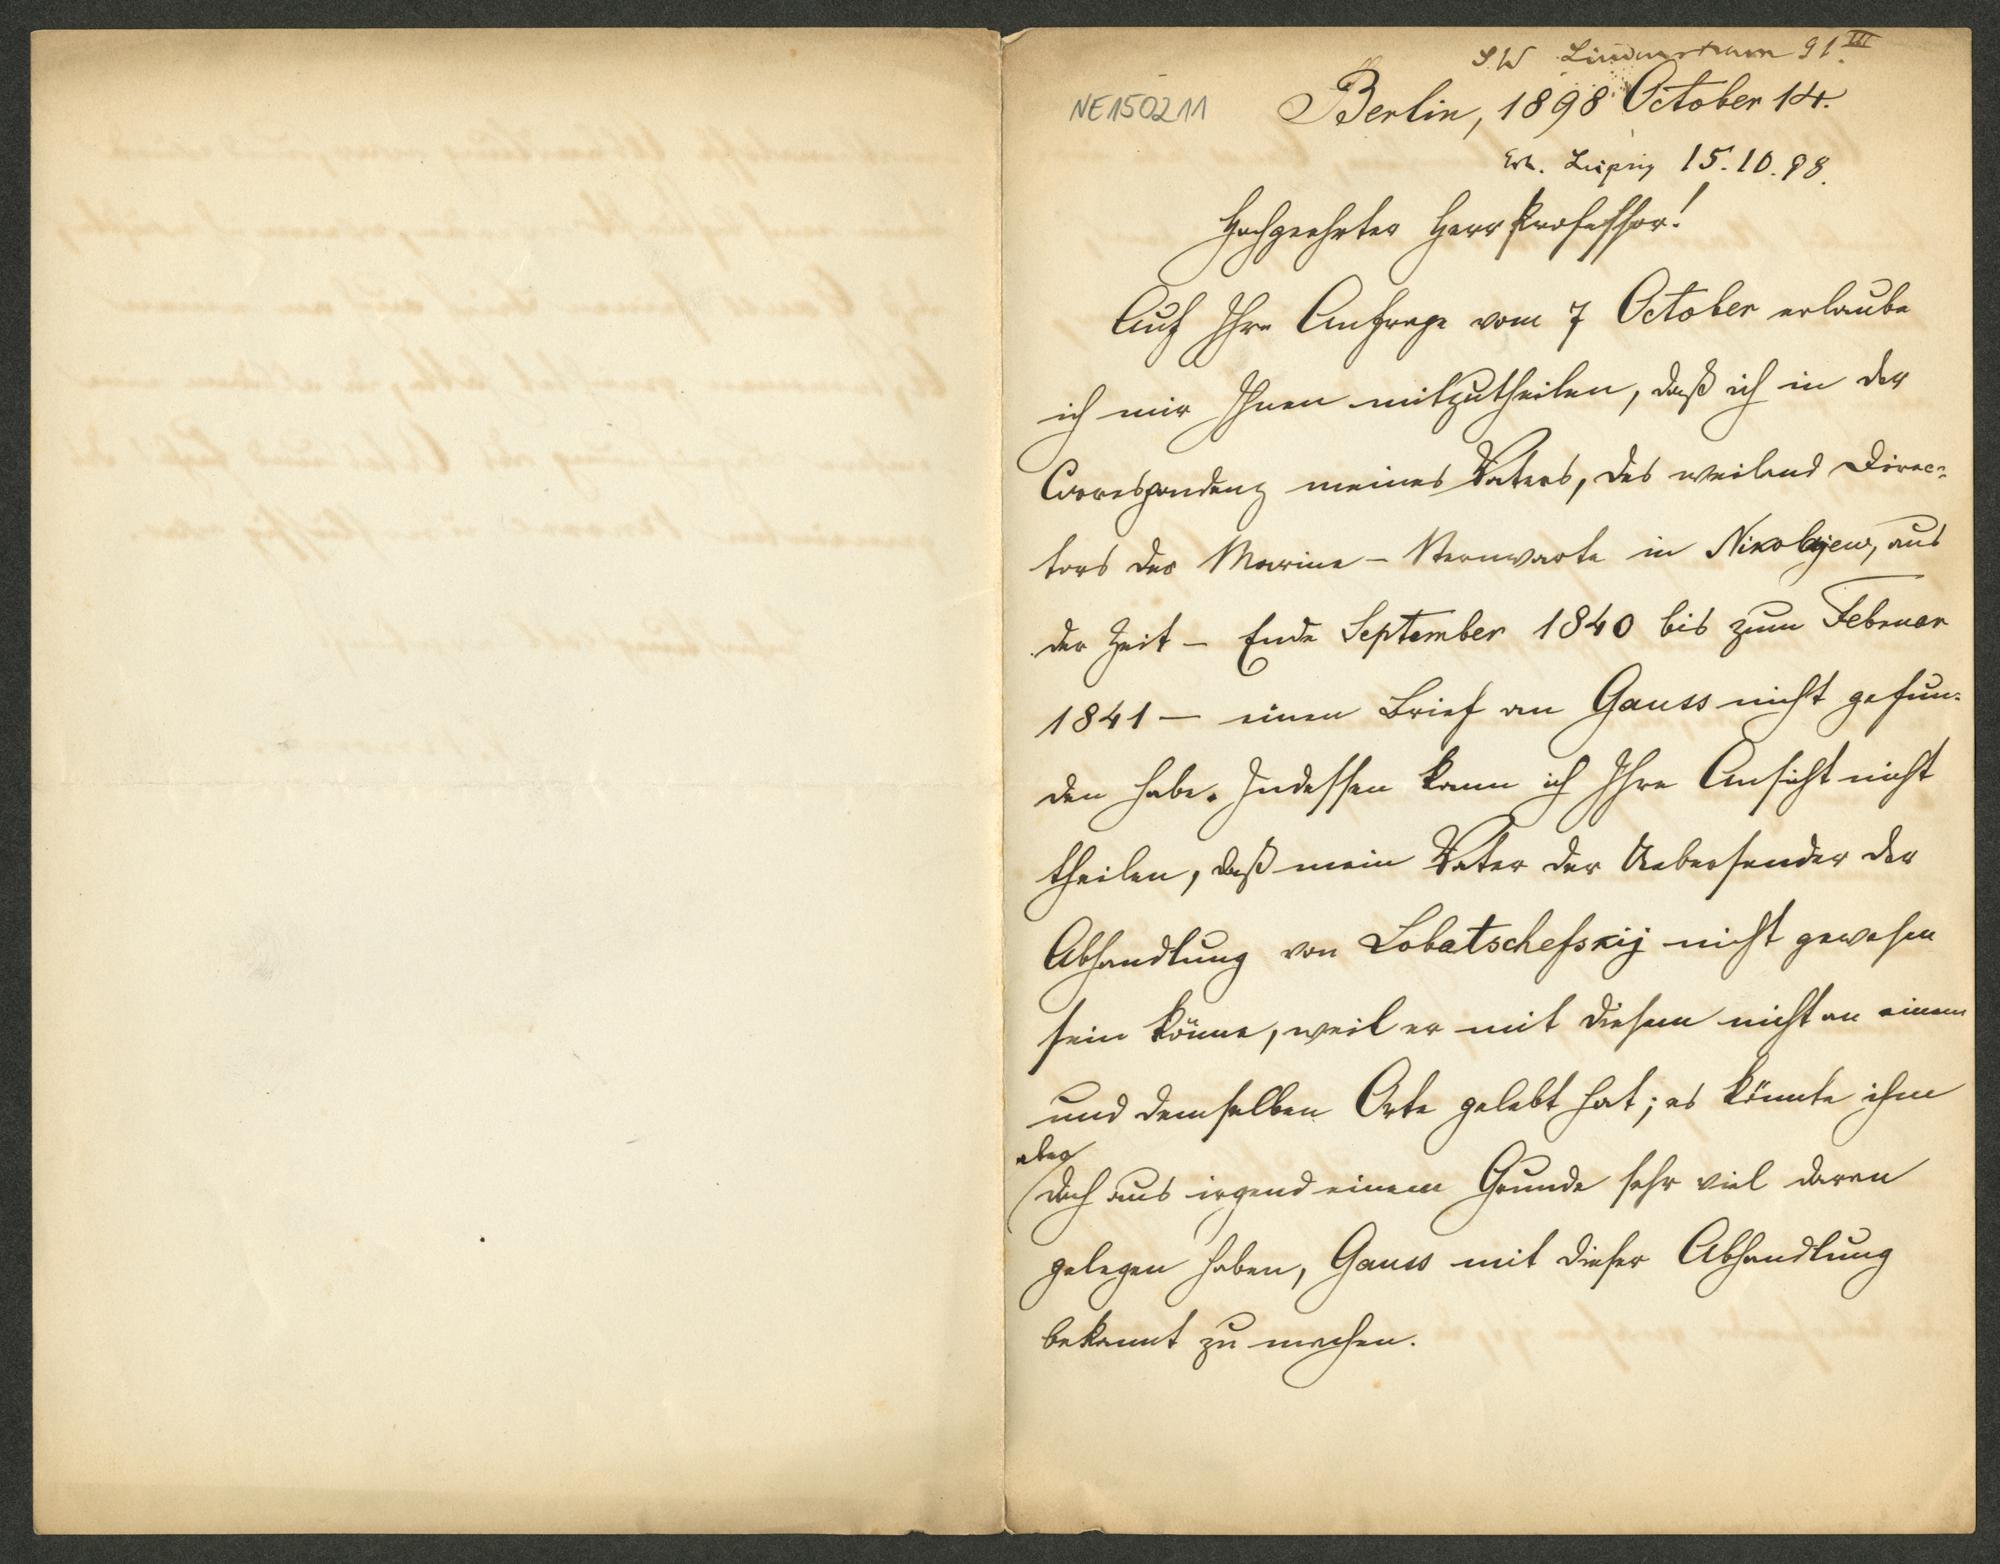 SW Lindenstrasse 91 III.
NE150211
Berlin, 1898 October 14.
Erh. Leipzig 15.10.98.
Hochgeehrter Herr Professor!
Auf Ihre Anfrage vom 7 October erlaube
ich mir Ihnen mitzutheilen, daß ich in der
Correspondenz meines Vaters, des weiland Direc-
tors der Marine-Sternwarte in Nikolajew, aus
der Zeit – Ende September 1840 bis zum Februar
1841 – einen Brief an Gauss nicht gefun-
den habe. Indessen kann ich Ihre Ansicht nicht
theilen, daß mein Vater der Uebersender der
Abhandlung von Lobatschefskij nicht gewesen
sein könne, weil er mit diesem nicht an einem
und demselben Orte gelebt hat; es könnte ihm
aber
doch aus irgend einem Grunde sehr viel daran
gelegen haben, Gauss mit dieser Abhandlung
bekannt zu machen.